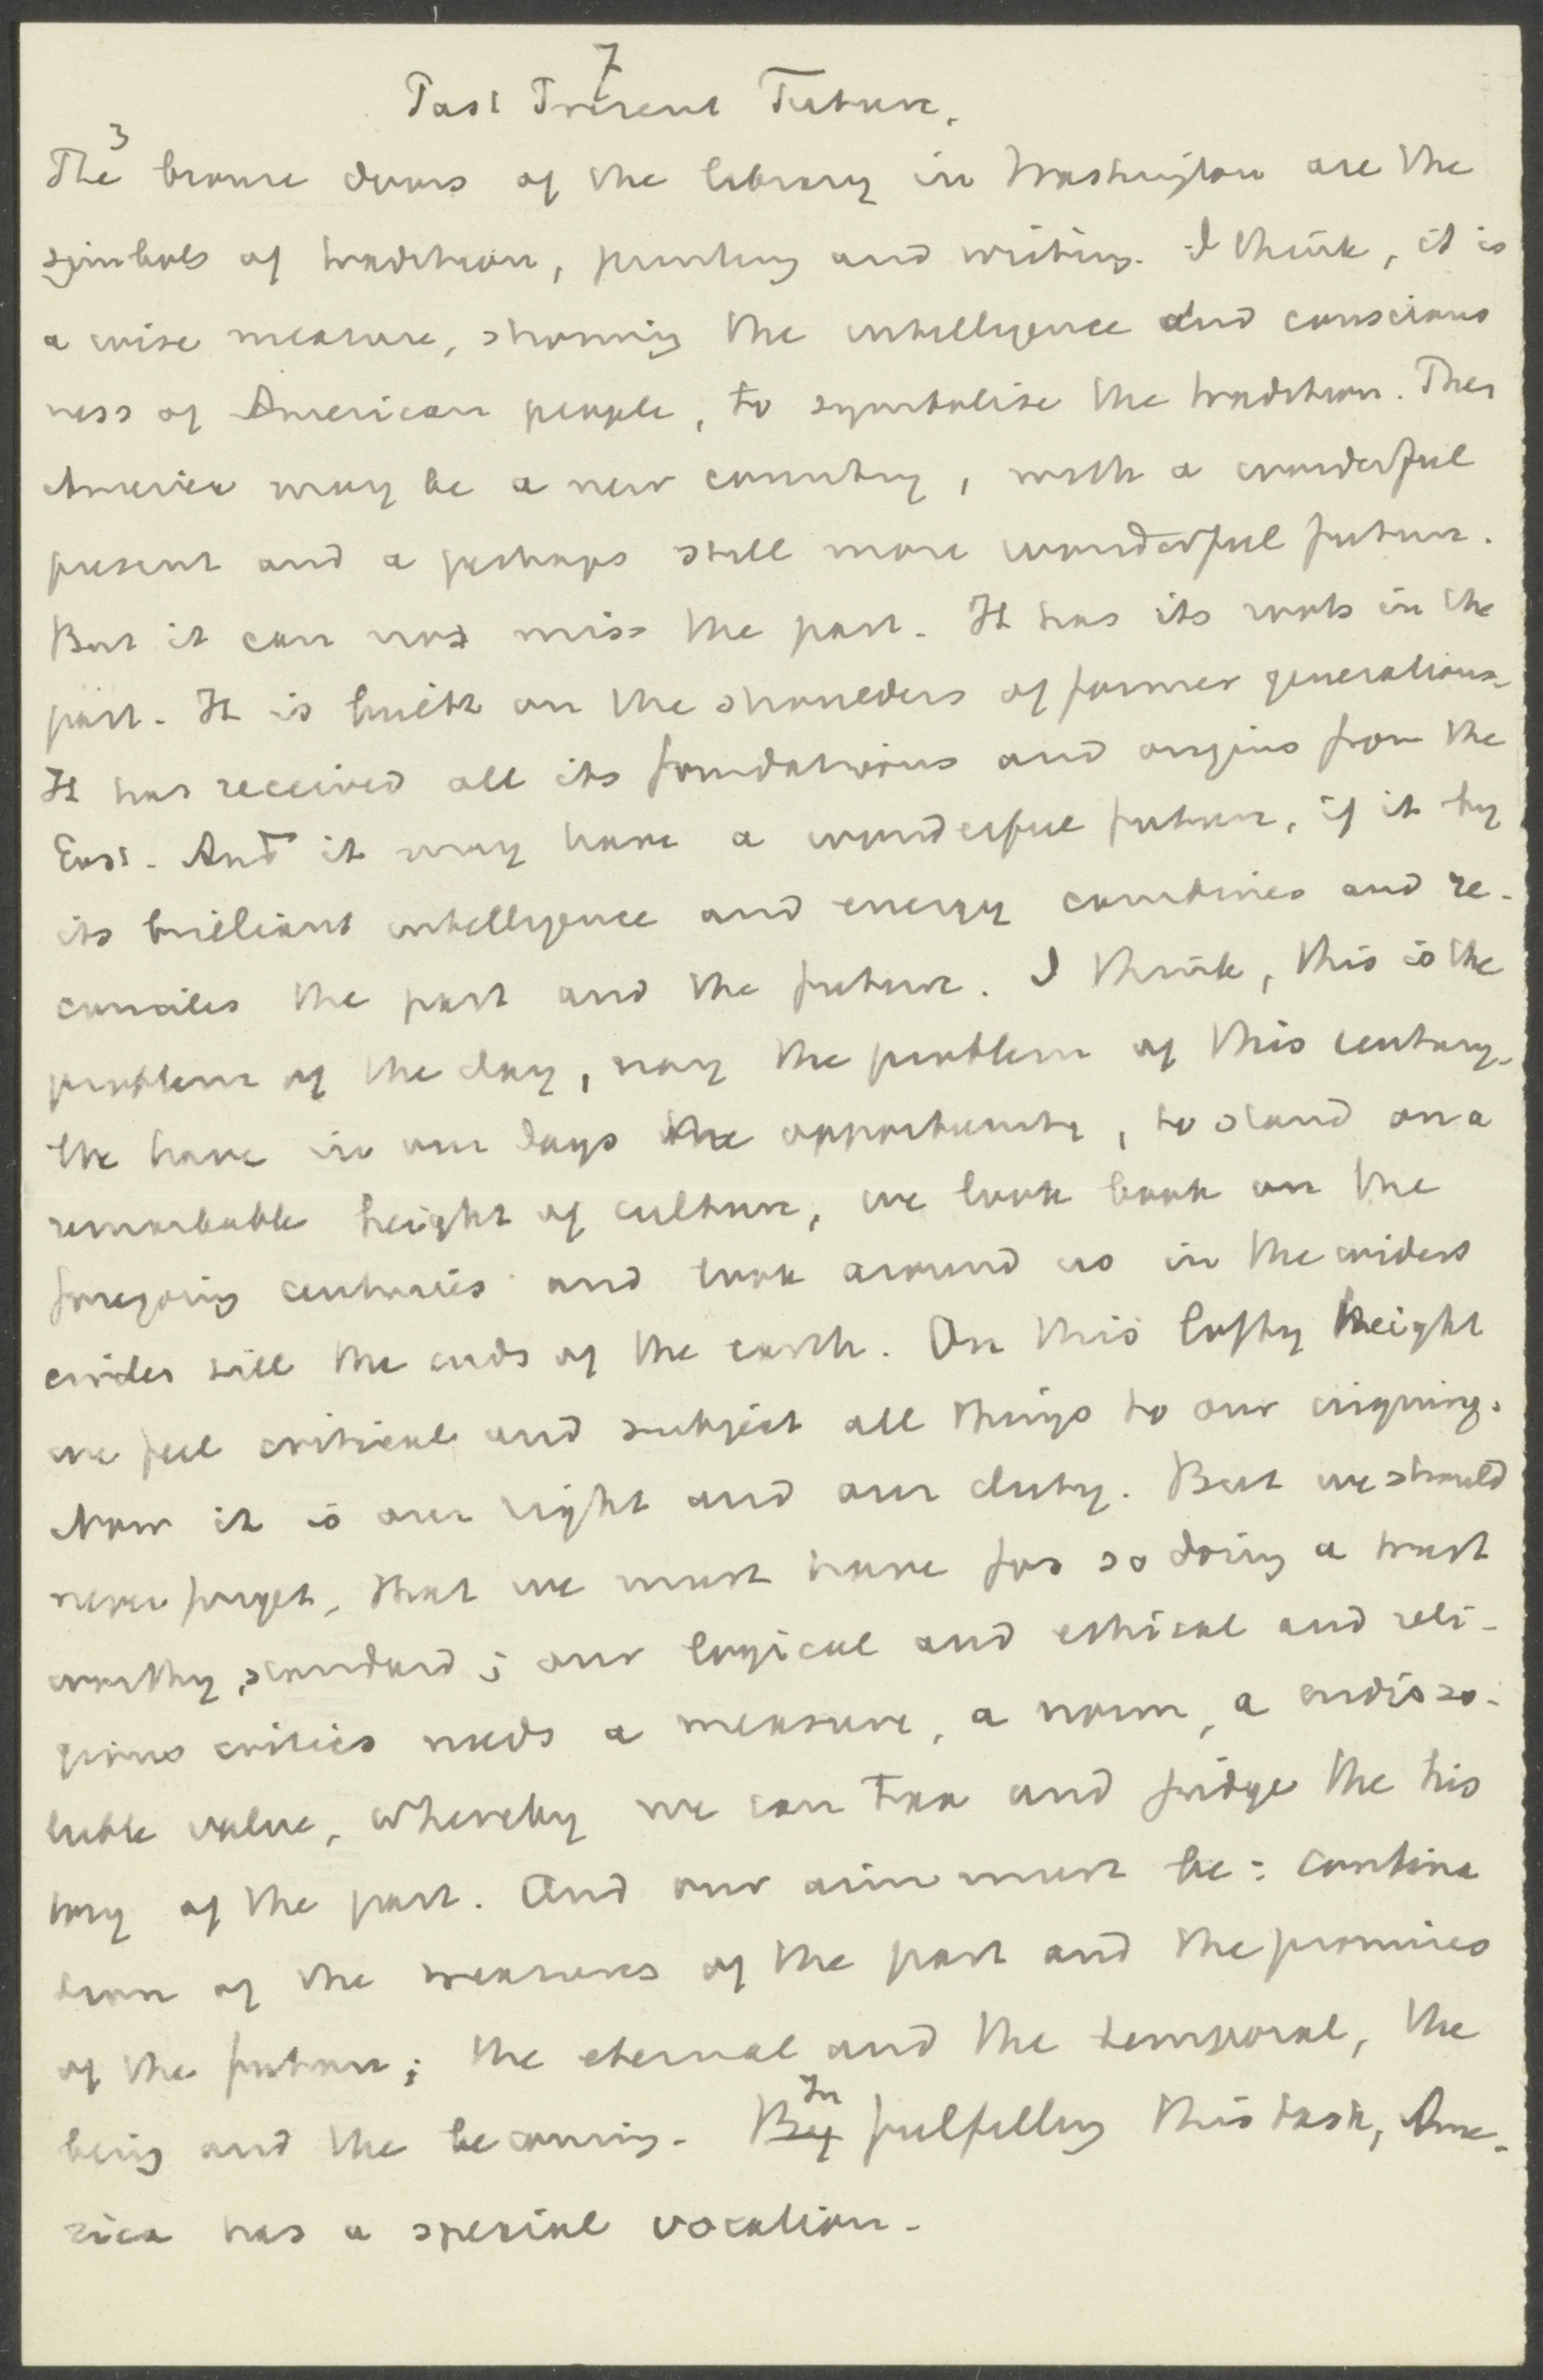 7
Past Present Future.
3
The bronze doors of the library in Washington are the
symbols of tradition, printing and writing. I think, it is
a wise measure, showing the intelligence and conscious
ness of American people, to symbolise the tradition. The
America may be a new country, with a wonderful
present and a perhaps still more wonderful future.
But it can not miss the past. It has its roots in the
past. It is built on the shoulders of former generations.
It has received all its foundations and origins from the
East. And it may have a wonderful future, if it by
its brilliant intelligence and energy combines and re-
conciles the past and the future. I think, this is the
problem of the day, nay the problem of this century.
We have in our days the opportunity, to stand on a
remarkable height of culture, we look back on the
foregoing centuries and look around us in the widest
circles till the ends of the earth. On this lofty height
we feel critical and subject all things to our
Now it is our right and our duty. But we should
never forget, that we must have for so doing a trust
worthy standard; our logical and ethical and reli-
gious critics needs a measure, a norm, a indisso-
luble value, whereby we can and judge the his
tory of the past. And our aim must be: combina
tion of the treasures of the past and the promises
of the future; the eternal and the temporal, the
being and the becoming. By In fulfilling this task, Ame-
rica has a special vocation.